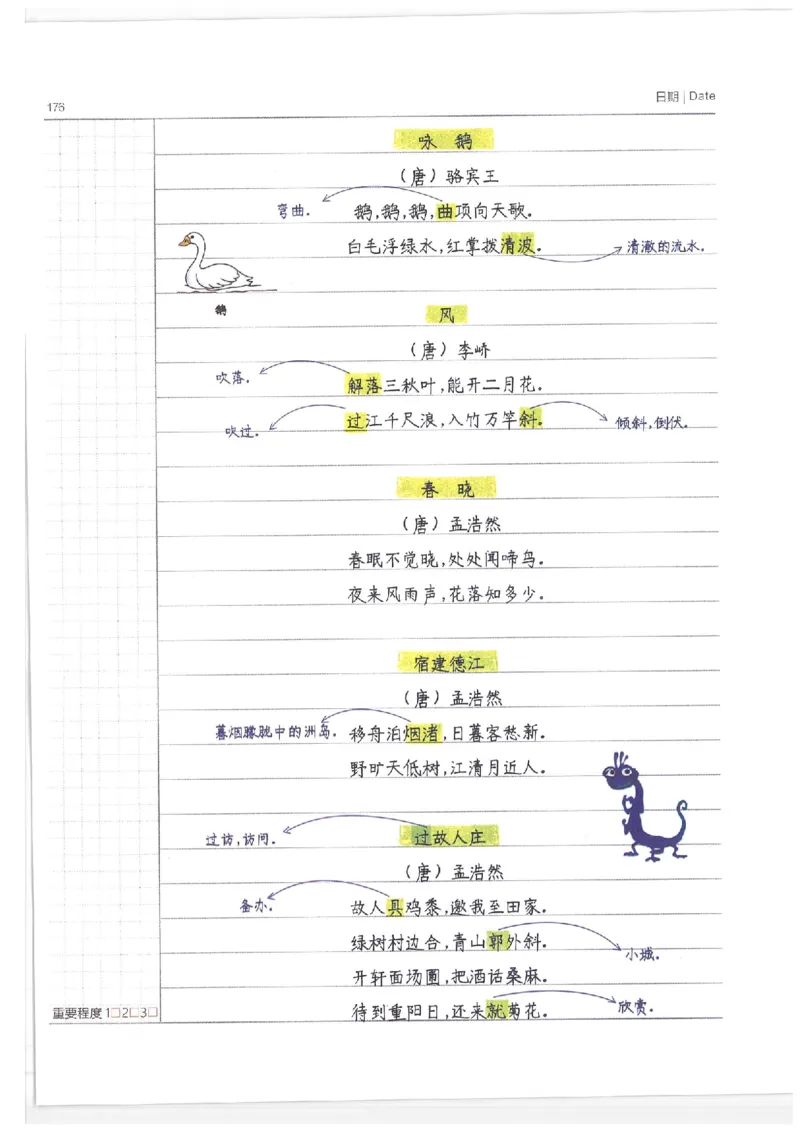 176
日期 | Date
咏 鹅
（唐）骆宾王
弯曲. 鹅,鹅,鹅,曲项向天歌.
白毛浮绿水,红掌拨清波. 清澈的流水.
鹅
风
（唐）李峤
吹落. 解落三秋叶,能开二月花.
吹过. 过江千尺浪,入竹万竿斜. 倾斜,倒伏.
春 晓
（唐）孟浩然
春眠不觉晓,处处闻啼鸟.
夜来风雨声,花落知多少.
宿建德江
（唐）孟浩然
暮烟朦胧中的洲岛. 移舟泊烟渚,日暮客愁新.
野旷天低树,江清月近人.
过访,访问. 过故人庄
（唐）孟浩然
备办. 故人具鸡黍,邀我至田家.
绿树村边合,青山郭外斜. 小城.
开轩面场圃,把酒话桑麻.
待到重阳日,还来就菊花. 欣赏.
重要程度 1□2□3□